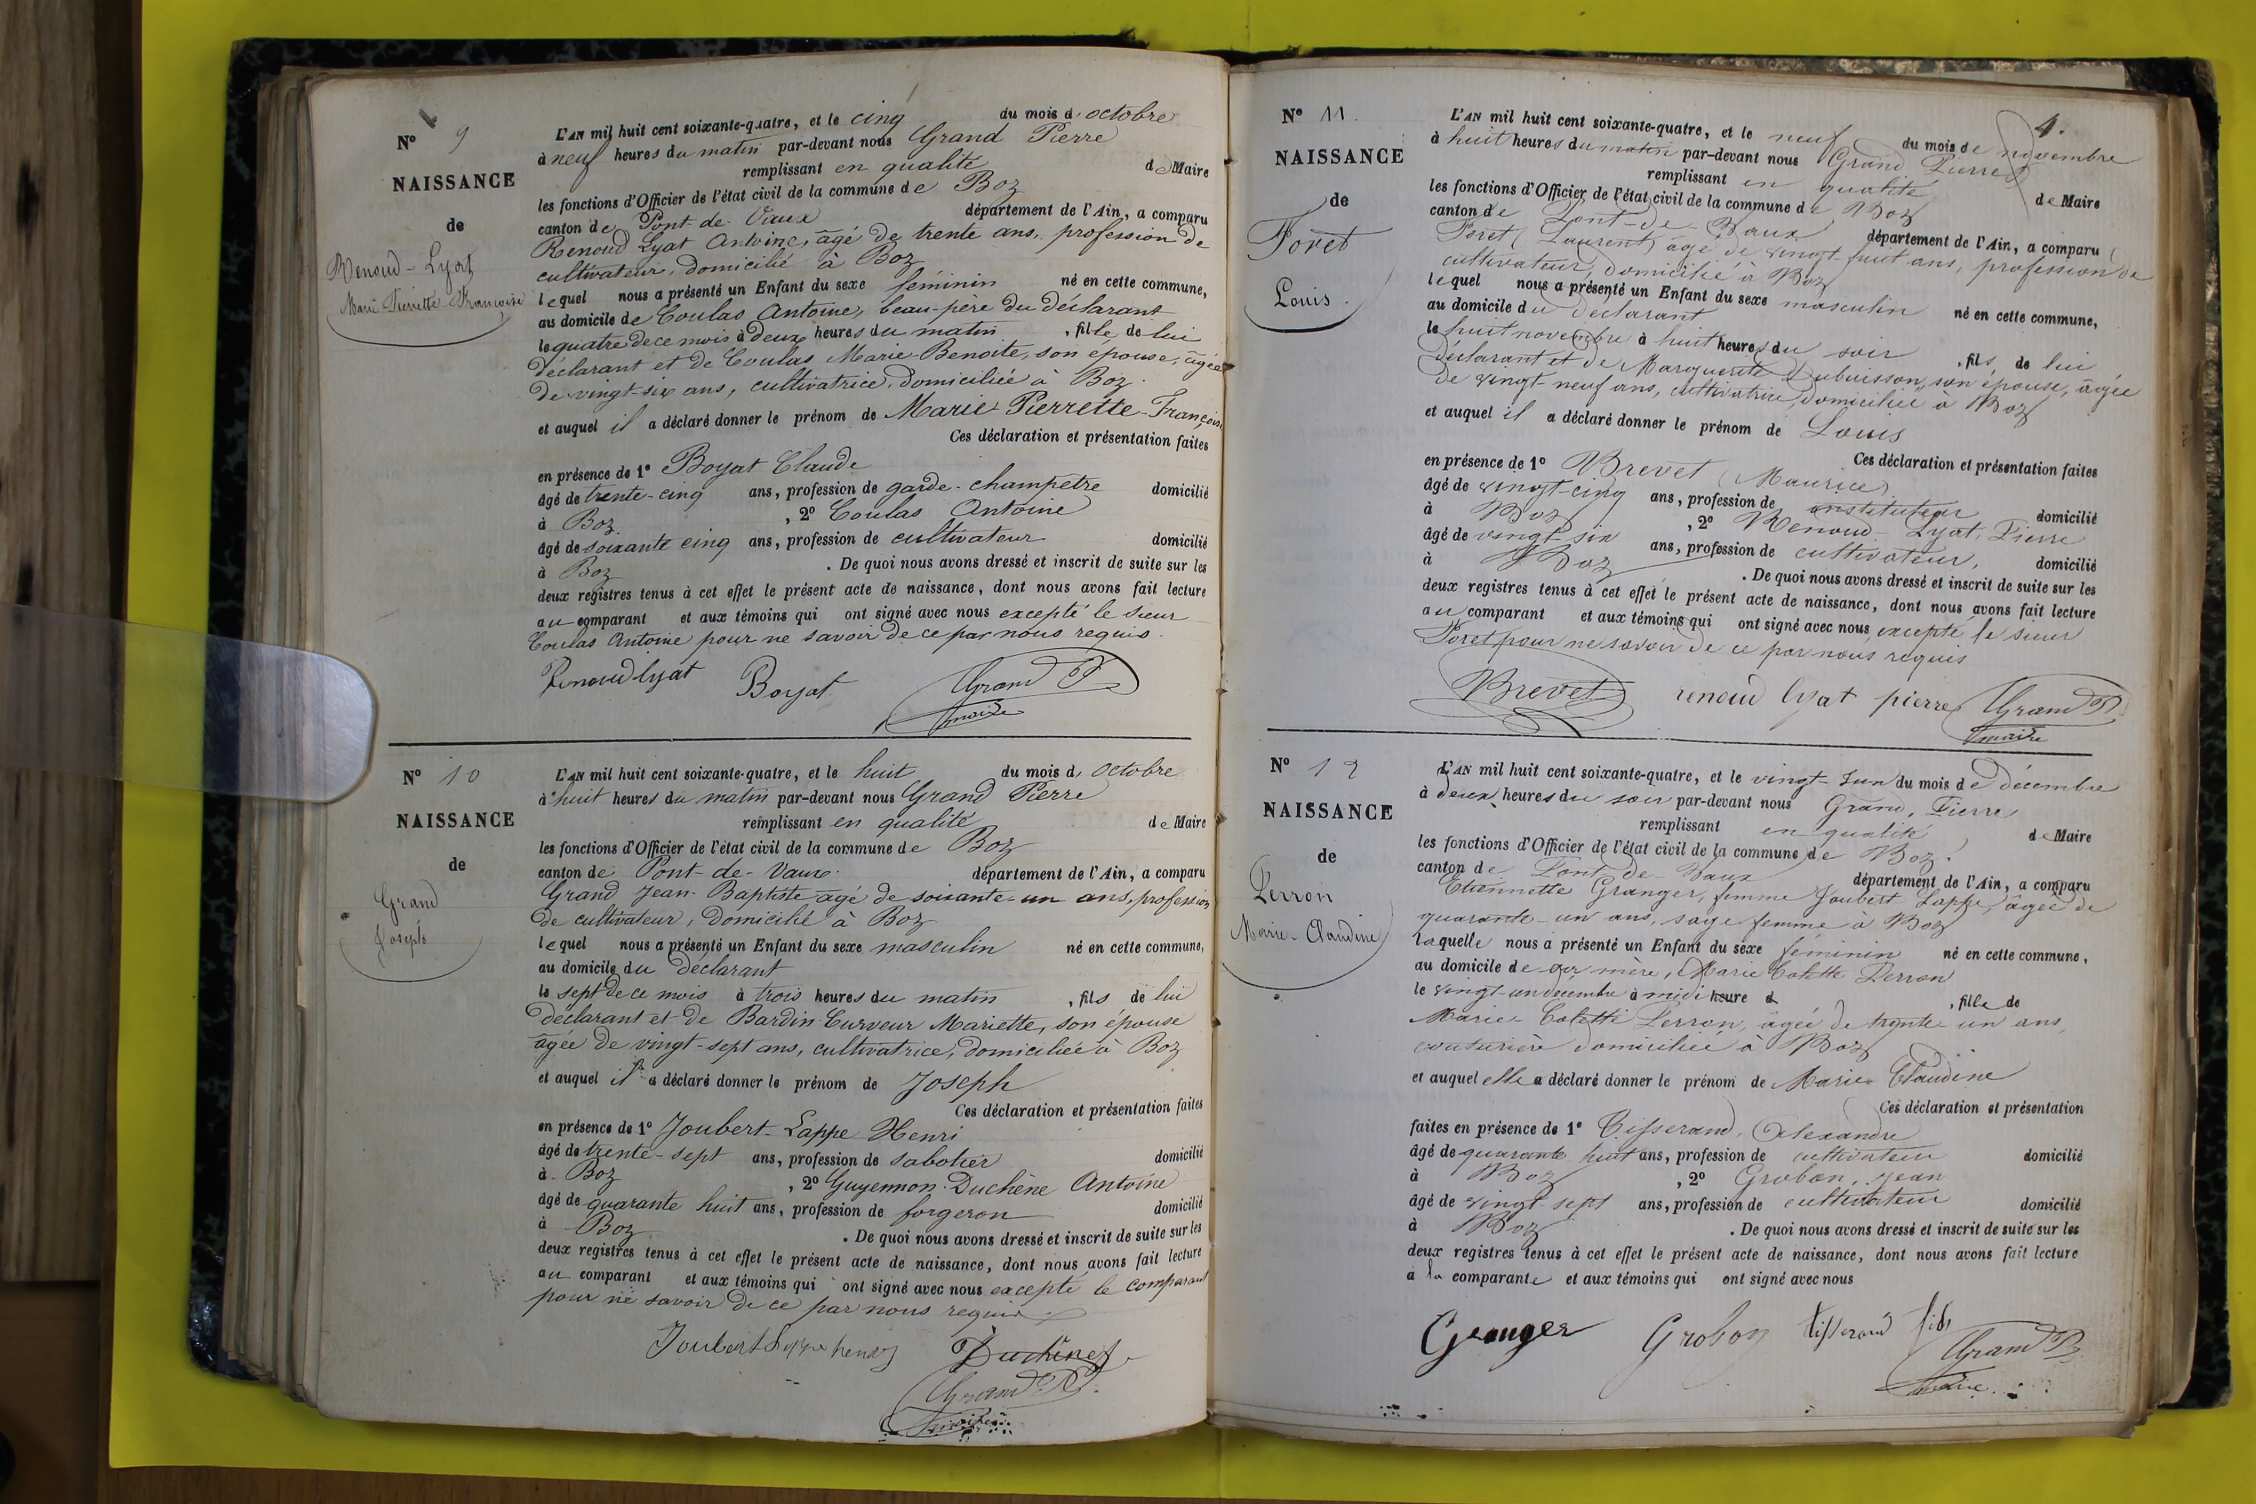 N° 9
NAISSANCE
de
Renoud-Lyat
Marie Pierrette Françoise
L'AN mil huit cent soixante-quatre, et le cinq du mois d'octobre
à neuf heures du matin par-devant nous Grand Pierre
remplissant en qualité de Maire
les fonctions d'Officier de l'état civil de la commune de Boz
canton de Pont-de-Vaux département de l'Ain, a comparu
Renoud Lyat Antoine, âgé de trente ans, profession de
cultivateur, domicilié à Boz
lequel nous a présenté un Enfant du sexe féminin né en cette commune,
au domicile de Coulas Antoine, beau-père du déclarant
le quatre de ce mois à deux heures du matin, fille de lui
déclarant et de Coulas Marie-Benoite, son épouse, âgée
de vingt-six ans, cultivatrice, domiciliée à Boz.
et auquel il a déclaré donner le prénom de Marie Pierrette-Françoise
Ces déclaration et présentation faites
en présence de 1° Boyat Claude
âgé de trente-cinq ans, profession de garde-champêtre domicilié
à Boz, 2° Coulas Antoine
âgé de soixante cinq ans, profession de cultivateur domicilié
à Boz. De quoi nous avons dressé et inscrit de suite sur les
deux registres tenus à cet effet le présent acte de naissance, dont nous avons fait lecture
au comparant et aux témoins qui ont signé avec nous excepté le sieur
Coulas Antoine pour ne savoir de ce par nous requis.
Renoud lyat Boyat Grand P
maire
N° 10
NAISSANCE
de
Grand
Joseph
L'AN mil huit cent soixante-quatre, et le huit du mois d'octobre
à huit heures du matin par-devant nous Grand Pierre
remplissant en qualité de Maire
les fonctions d'Officier de l'état civil de la commune de Boz
canton de Pont-de-Vaux département de l'Ain, a comparu
Grand Jean-Baptiste âgé de soixante-un ans, profession
de cultivateur, domicilié à Boz
lequel nous a présenté un Enfant du sexe masculin né en cette commune,
au domicile du déclarant
le sept de ce mois à trois heures du matin, fils de lui
déclarant et de Bardin-Curveur Mariette, son épouse
âgée de vingt-sept ans, cultivatrice, domiciliée à Boz
et auquel il a déclaré donner le prénom de Joseph
Ces déclaration et présentation faites
en présence de 1° Joubert-Lappe Henri
âgé de trente-sept ans, profession de sabotier domicilié
à Boz, 2° Guyennon-Duchène Antoine
âgé de quarante huit ans, profession de forgeron domicilié
à Boz. De quoi nous avons dressé et inscrit de suite sur les
deux registres tenus à cet effet le présent acte de naissance, dont nous avons fait lecture
au comparant et aux témoins qui ont signé avec nous excepté le comparant
pour ne savoir de ce par nous requis
Joubert Lappe henry Duchêne
Grand P.
maire
4.
N° 11.
NAISSANCE
de
Foret
Louis.
L'AN mil huit cent soixante-quatre, et le neuf du mois de novembre
à huit heures du matin par-devant nous Grand Pierre
remplissant en qualité de Maire
les fonctions d'Officier de l'état civil de la commune de Boz
canton de Pont-de-Vaux département de l'Ain, a comparu
Foret (Laurent) âgé de vingt-huit ans, profession de
cultivateur, domicilié à Boz
lequel nous a présenté un Enfant du sexe masculin né en cette commune,
au domicile du déclarant
le huit novembre à huit heures du soir, fils de lui
déclarant et de Marguerite Dubuisson, son épouse, âgée
de vingt-neuf ans, cultivatrice, domiciliée à Boz
et auquel il a déclaré donner le prénom de Louis
Ces déclaration et présentation faites
en présence de 1° Brevet (Maurice)
âgé de vingt-cinq ans, profession de instituteur domicilié
à Boz, 2° Renoud-Lyat, Pierre
âgé de vingt-six ans, profession de cultivateur, domicilié
à Boz. De quoi nous avons dressé et inscrit de suite sur les
deux registres tenus à cet effet le présent acte de naissance, dont nous avons fait lecture
au comparant et aux témoins qui ont signé avec nous excepté le sieur
Foret pour ne savoir de ce par nous requis
Brevet renoud lyat pierre Grand P.
maire
N° 12
NAISSANCE
de
Perron
Marie-Claudine
L'AN mil huit cent soixante-quatre, et le vingt-un du mois de décembre
à deux heures du soir par-devant nous Grand, Pierre
remplissant en qualité de Maire
les fonctions d'Officier de l'état civil de la commune de Boz.
canton de Pont-de-Vaux département de l'Ain, a comparu
Etiennette Granger, femme Joubert Lappe, âgée de
quarante-un ans, sage femme à Boz
laquelle nous a présenté un Enfant du sexe féminin né en cette commune,
au domicile de sa mère, Marie Colette Perron
le vingt-un décembre à midi heure d, fille de
Marie-Colette Perron, âgée de trente-un ans,
couturière domiciliée à Boz
et auquel elle a déclaré donner le prénom de Marie-Claudine
Ces déclaration et présentation
faites en présence de 1° Tisserand, Alexandre
âgé de quarante huit ans, profession de cultivateur domicilié
à Boz, 2° Grobon, Jean
âgé de vingt-sept ans, profession de cultivateur domicilié
à Boz. De quoi nous avons dressé et inscrit de suite sur les
deux registres tenus à cet effet le présent acte de naissance, dont nous avons fait lecture
à la comparante et aux témoins qui ont signé avec nous
Granger Grobon tisserand fils
Grand P.
maire